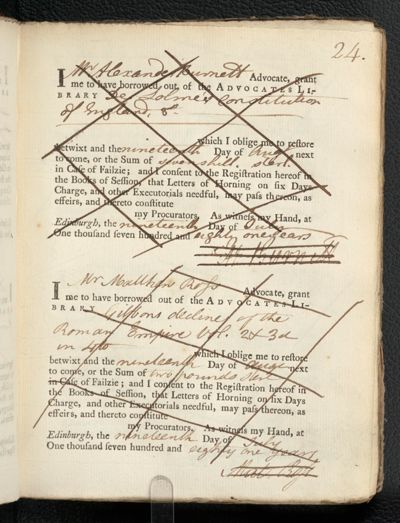 24.
I Mr Alexander Burnett Advocate, grant
me to have borrowed out of the ADVOCATES LI-
BRARY De Lolme's Constitution
of England, 8º
which I oblige me to reſtore
betwixt and the nineteenth Day of Augt next
to come, or the Sum of ſeven shill. sterl.
in Caſe of Failzie; and I conſent to the Regiſtration hereof in
the Books of Seſſion, that Letters of Horning on ſix Days
Charge, and other Executorials needful, may paſs thereon, as
effeirs, and thereto conſtitute
my Procurators. As witneſs my Hand, at
Edinburgh, the nineteenth Day of July
One thouſand ſeven hundred and eighty one years
Al: Burnett
I Mr Matthew Roſs Advocate, grant
me to have borrowed out of the ADVOCATES LI-
BRARY Gibbons decline of the
Roman Empire Vol. 2 & 3d
in 4to
which I oblige me to reſtore
betwixt and the nineteenth Day of Augt next
to come, or the Sum of two pounds sterl.
in Caſe of Failzie; and I conſent to the Regiſtration hereof in
the Books of Seſſion, that Letters of Horning on ſix Days
Charge, and other Executorials needful, may paſs thereon, as
effeirs, and thereto conſtitute
my Procurators. As witneſs my Hand, at
Edinburgh, the nineteenth Day of July
One thouſand ſeven hundred and eighty one years
Matt: Roſs